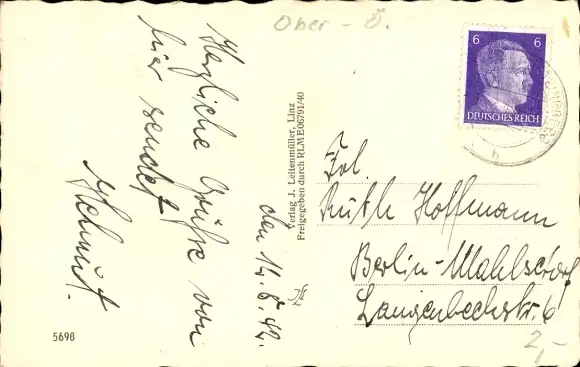 Ober-Ö.
Herzliche Grüße von
hier sendet
Helmut.
den 14.6.42.
Verlag J. Leitenmüller, Linz
Freigegeben durch RLM E06791/40
6 6
DEUTSCHES REICH
b
Frl.
Ruth Hoffmann
Berlin-Mahlsdorf
Langenbeckstr. 6
5698
2,-